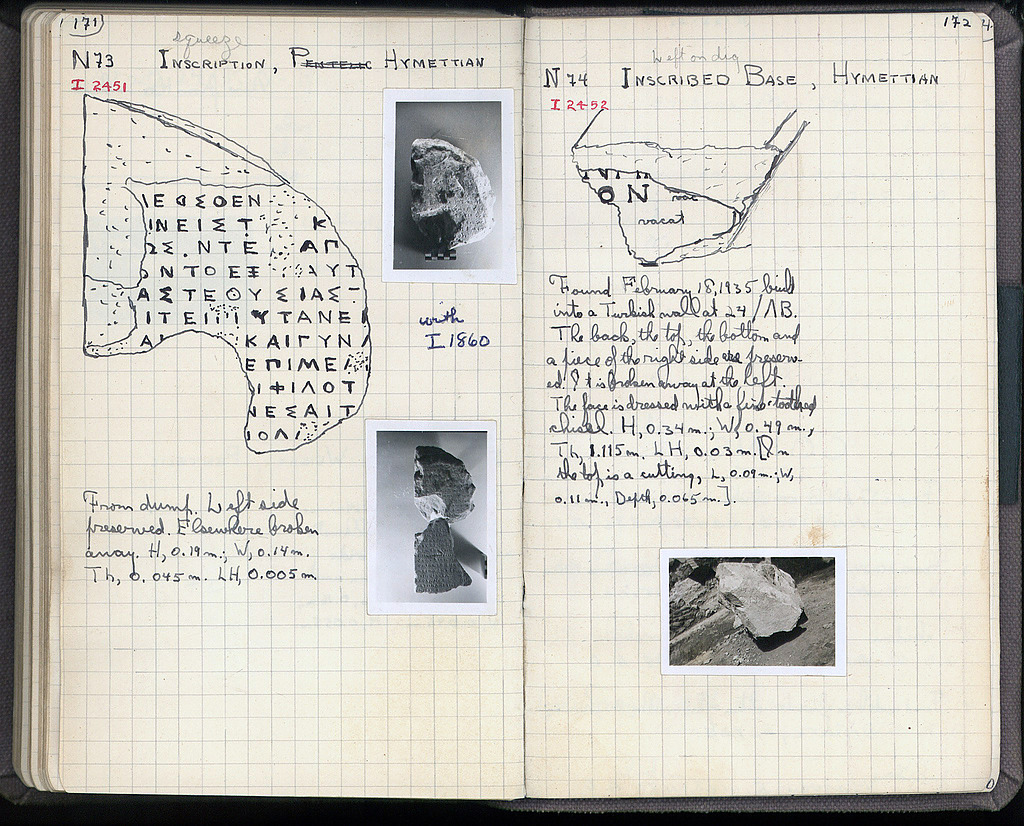 171
squeeze
N73 INSCRIPTION, PENTELIC HYMETTIAN
I 2451
ΙΕΟΣΘΕΝ
ΙΝΕΙΣΤ Κ
ΩΣ.ΝΤΕ ΑΠ
ΟΝΤΟΕΞ ΑΥΤ
ΑΣΤΕΟΥΣΙΑΣΤ
ΙΤΕΙ ΥΤΑΝΕΙ
Α ΚΑΙΓΥΝ
ΕΠΙΜΕΙ
ΙΦΙΛΟΤ
ΝΕΣΑΙΤ
ΙΟΛ
with
I 1860
From dump. Left side
preserved. Elsewhere broken
away. H, 0.19 m.; W, 0.14 m.
Th, 0.045 m. LH, 0.005 m
172
left on dig
N74 INSCRIBED BASE, HYMETTIAN
I 2452
ΟΝ vac
vacat
Found February 18, 1935 built
into a Turkish wall at 24/ΛΒ.
The back, the top, the bottom and
a piece of the right side are preserv-
ed. It is broken away at the left.
The face is dressed with a fine-toothed
chisel. H, 0.34 m.; W, 0.49 m.,
Th, 1.115 m. LH, 0.03 m. [In
the top is a cutting, L, 0.09 m.; W,
0.11 m., Depth, 0.065 m.].